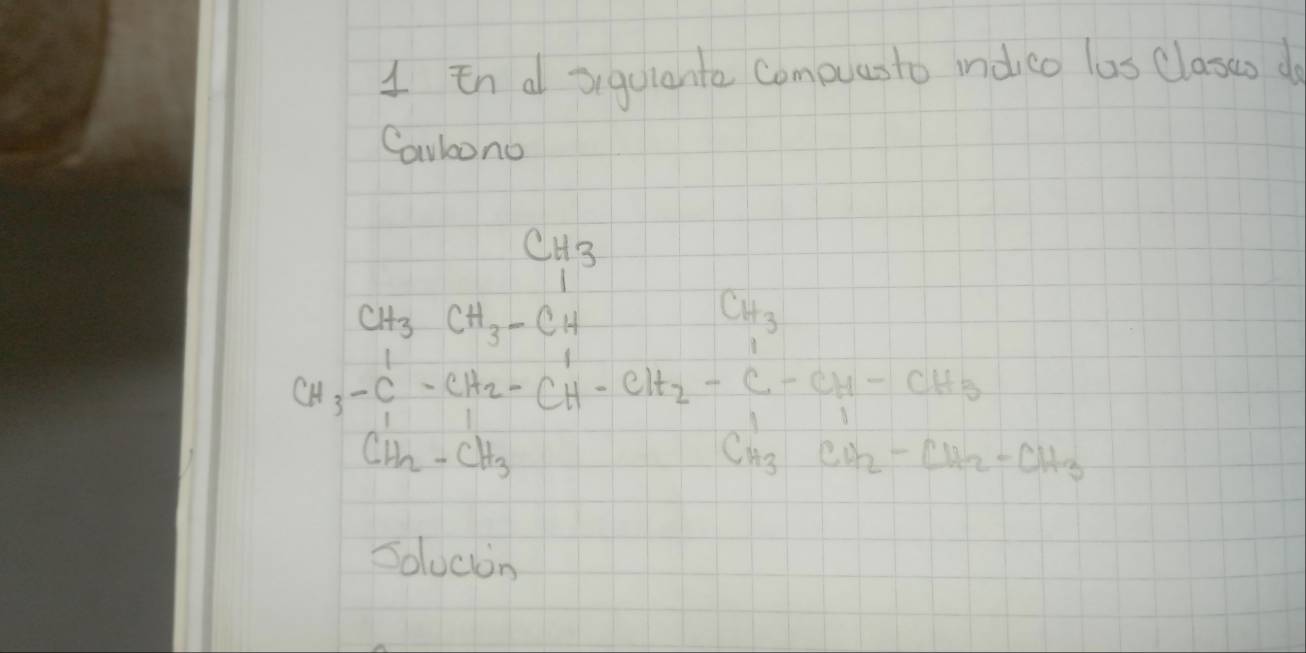 1 En el siguiente compuesto indico las clases de
Carbono
CH3
|
CH3 CH3 - CH CH3
| | |
CH3 - C - CH2 - CH - CH2 - C - CH - CH3
| | | |
CH2 - CH3 CH3 CH2 - CH2 - CH3
Solución